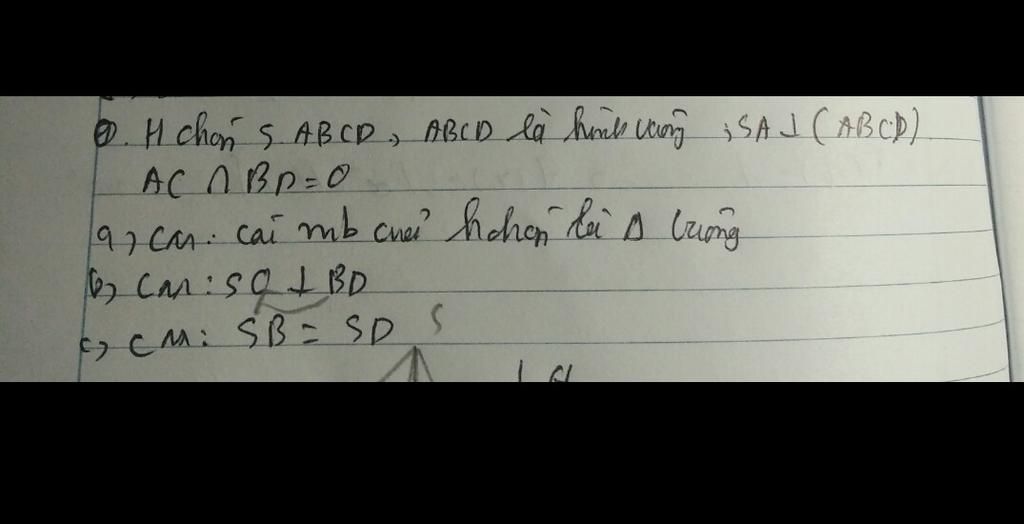 ②. H chóp S ABCD, ABCD là hình vuông ; SA ⊥ (ABCD)
AC ∩ BD = O
a, CM: cái mb của hchóp là Δ vuông
b, CM: SO ⊥ BD
c, CM: SB = SD S